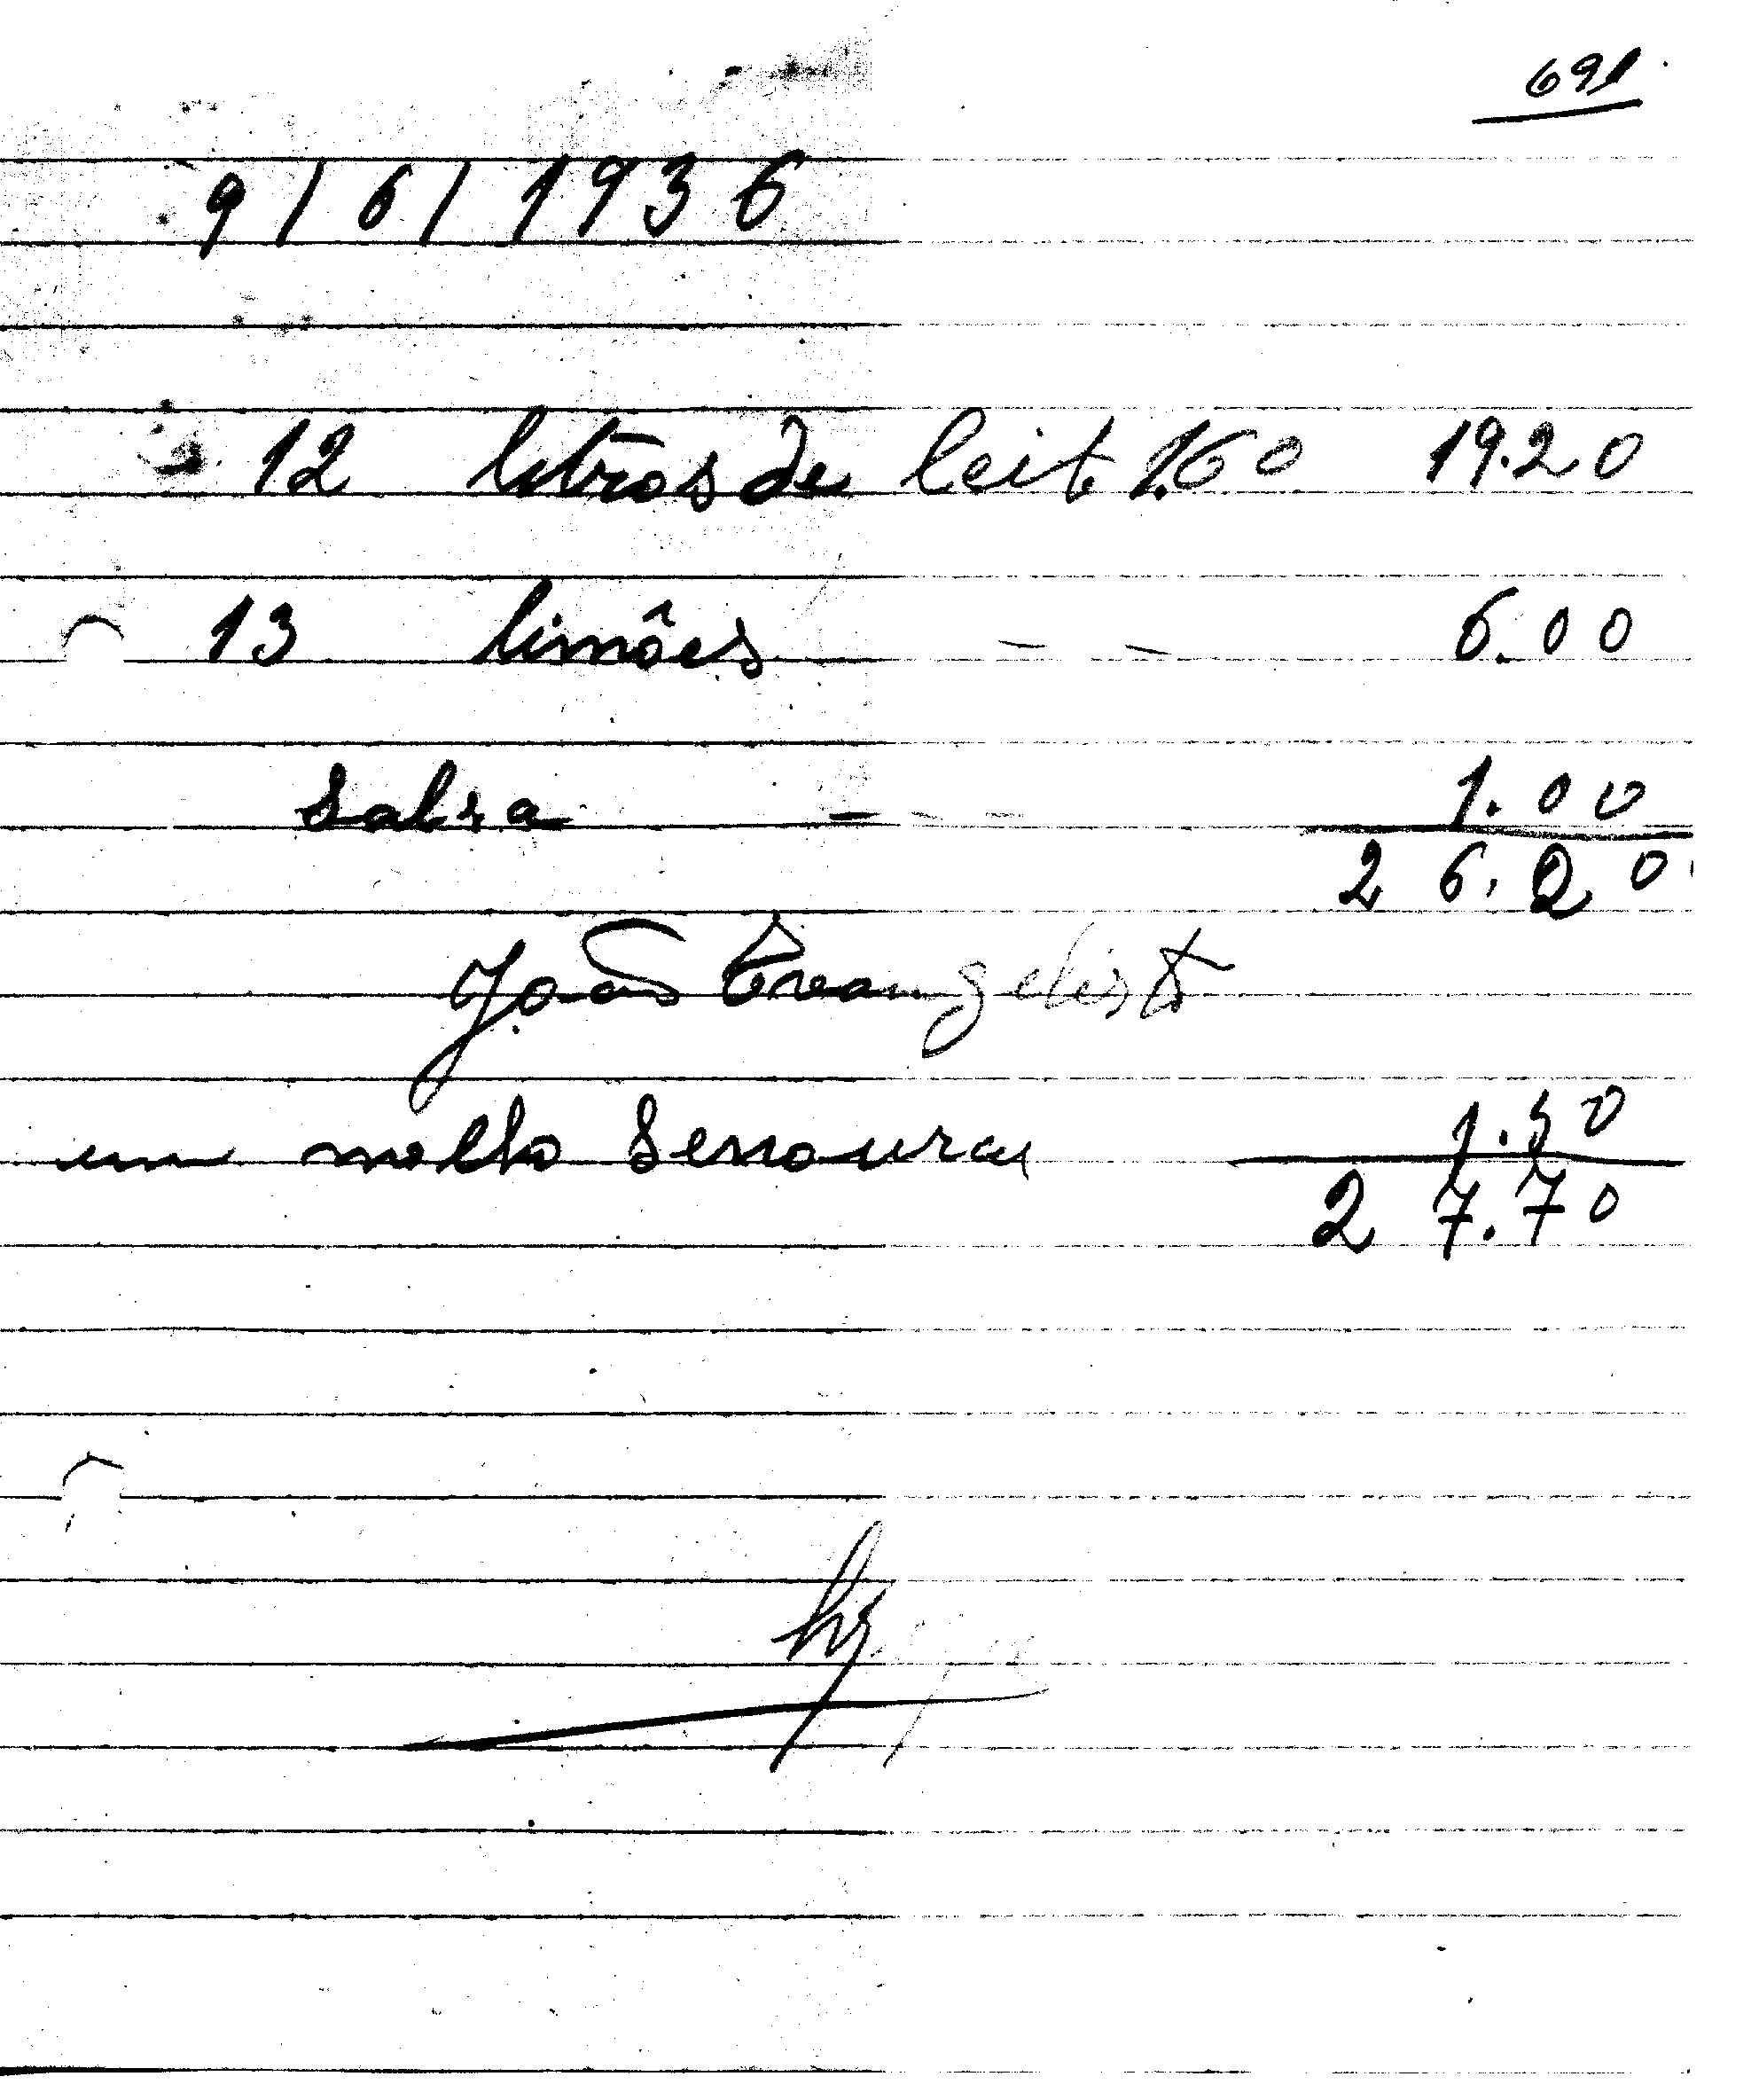 691
9/6/1936
12 litros de leit 1.60 19.20
13 limões - - 6.00
Salsa - - - 1.00
26.20
João Evangelista
um molho Senoura 1.50
27.70